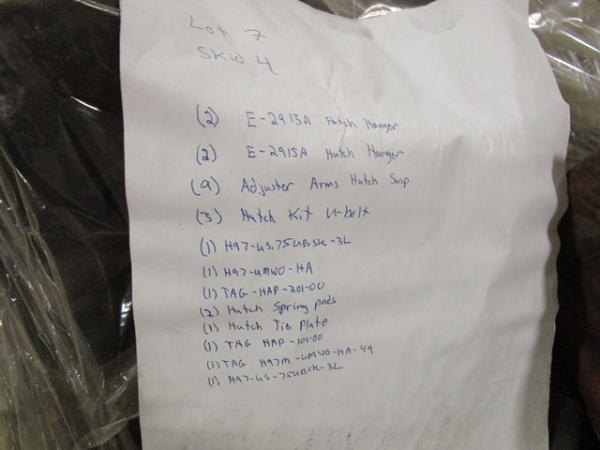 Lot 7
Skid 4
(2) E-2913A Hutch Hanger
(2) E-2915A Hutch Hanger
(9) Adjuster Arms Hutch Susp
(3) Hutch Kit U-bolt
(1) H97-US.75UBSK-3L
(1) H97-UMWO-HA
(1) TAG-HAP-201-00
(2) Hutch Spring pads
(1) Hutch Tie Plate
(1) TAG HAP-101-00
(1) TAG H97M-UMWO-HA-49
(1) H97-US-75UBSK-3L